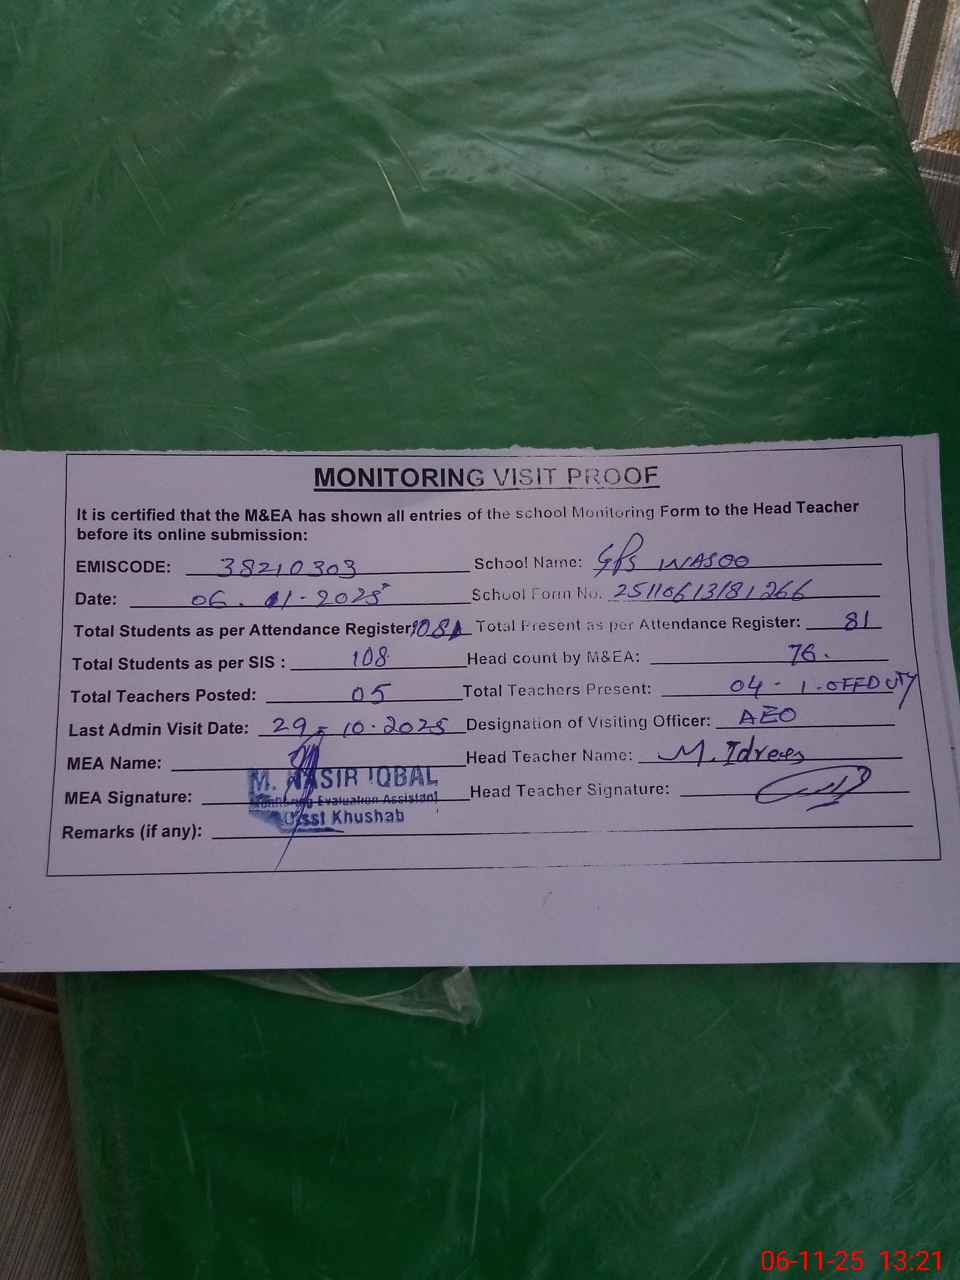 MONITORING VISIT PROOF
It is certified that the M&EA has shown all entries of the school Monitoring Form to the Head Teacher
before its online submission:
EMISCODE: 38210303 School Name: GPS WASOO
Date: 06.11-2025 School Form No. 25110613181266
Total Students as per Attendance Register: 108 Total Present as per Attendance Register: 81
Total Students as per SIS : 108 Head count by M&EA: 76.
Total Teachers Posted: 05 Total Teachers Present: 04 - 1.OFFDUTY
Last Admin Visit Date: 29-10-2025 Designation of Visiting Officer: AEO
MEA Name: Head Teacher Name: M. Idrees
M. NASIR IQBAL
MEA Signature: Head Teacher Signature:
Monitoring Evaluation Assistant
Khushab
Remarks (if any):
06-11-25 13:21